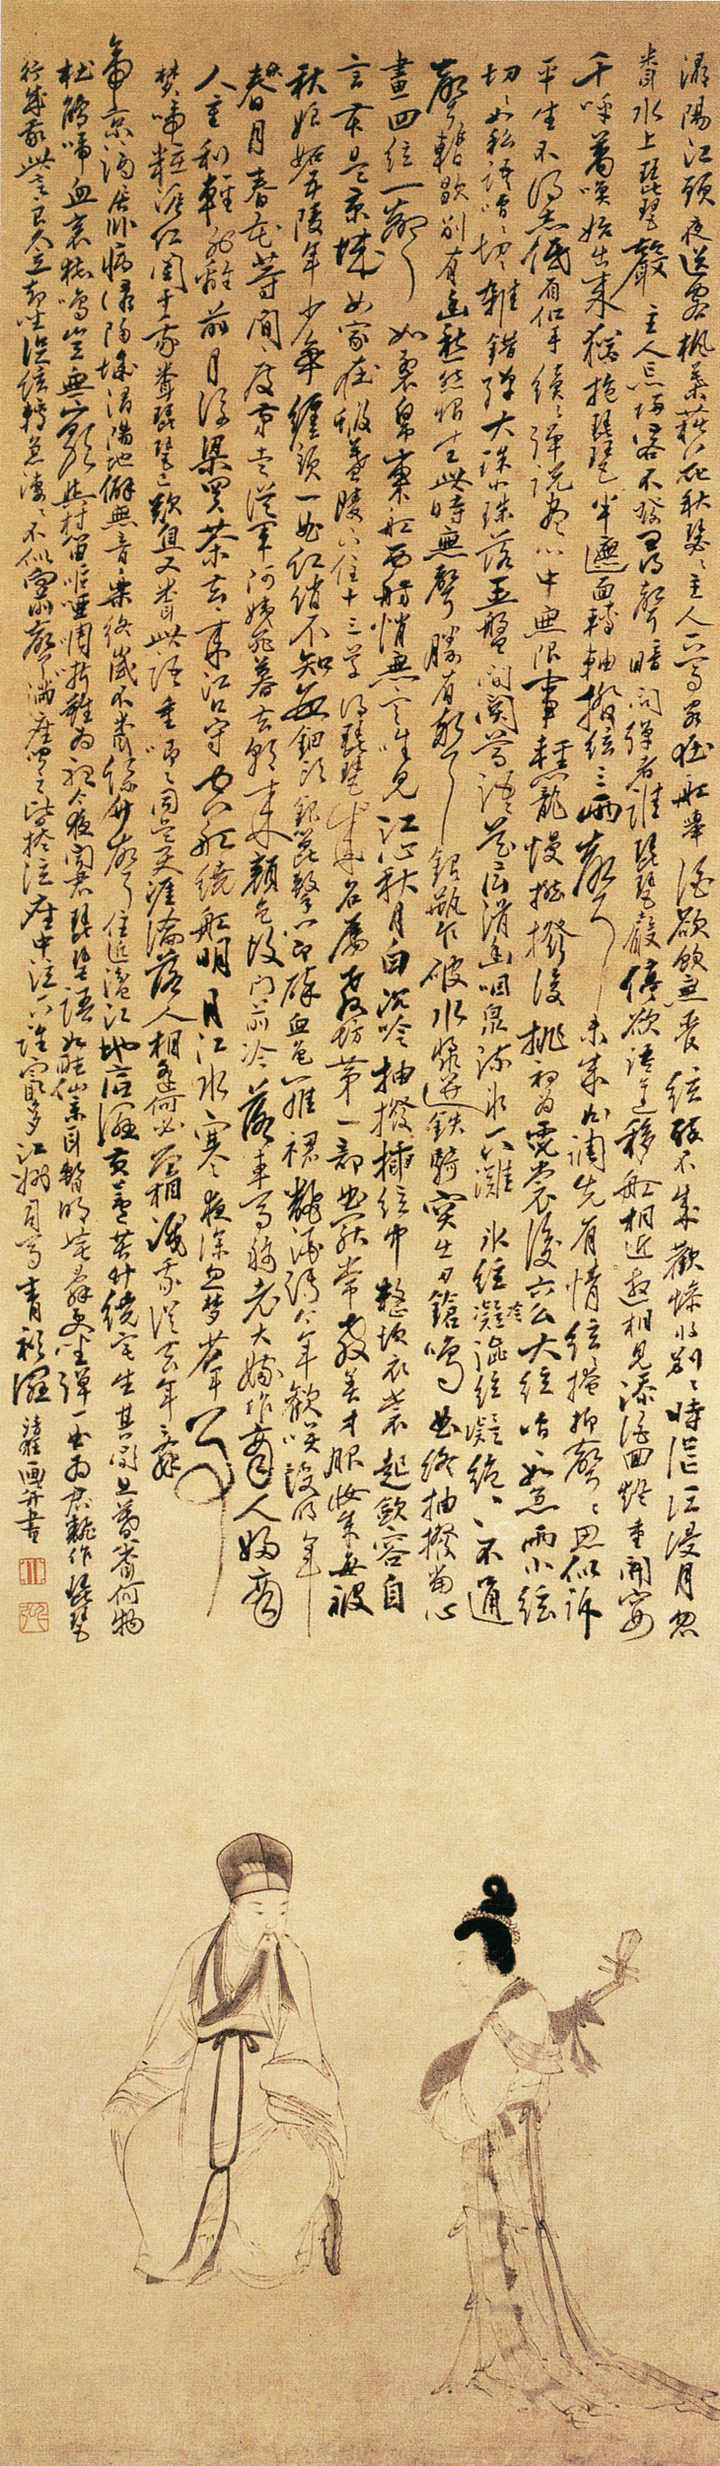 潯陽江頭夜送客楓葉荻花秋瑟〻主人下馬客在船舉酒欲飲無管絃醉不成歡慘將別〻時茫江浸月忽
聞水上琵琶聲主人忘歸客不發尋聲暗問彈者誰琵琶聲停欲語遲移船相近邀相見添酒回燈重開宴
千呼萬喚始出來猶抱琵琶半遮面轉軸撥絃三兩聲未成曲調先有情絃〻掩抑聲〻思似訴
平生不得志低眉信手續〻彈說盡心中無限事輕攏慢撚撥復挑初為霓裳後六么大絃嘈〻如急雨小絃
切〻如私語嘈〻切〻雜錯彈大珠小珠落玉盤間關鶯語花底滑幽咽泉流水下灘水絃冷澁絃凝絕〻不通
聲暫歇別有幽愁暗恨生此時無聲勝有聲銀瓶乍破水漿迸鐵騎突出刀鎗鳴曲終抽撥當心
畫四絃一聲如裂帛東船西舫悄無言唯見江心秋月白沉吟抽撥插絃中整頓衣裳起歛容自
言本是京城女家在蝦蟇陵下住十三學得琵琶成名屬教坊第一部曲罷常教善才服妝成每被
秋娘妬五陵年少爭纏頭一曲紅綃不知數鈿頭銀篦擊節碎血色羅裙翻酒污今年歡笑復明年
秋月春花等閒度弟走從軍阿姨死暮去朝來顏色故門前冷落車馬稀老大嫁作商人婦商
人重利輕別離前月浮梁買茶去〻來江口守空船繞船明月江水寒夜深忽夢少年事
夢啼粧淚紅闌干我聞琵琶已歎息又聞此語重唧〻同是天涯淪落人相逢何必曾相識我從去年辭
帝京謫居臥病潯陽城潯陽地僻無音樂終歲不聞絲竹聲住近湓江地低濕黃蘆苦竹繞宅生其間旦暮聞何物
杜鵑啼血哀猿鳴豈無山歌與村笛嘔啞嘲哳難為聽今夜聞君琵琶語如聽仙樂耳暫明莫辭更坐彈一曲為君翻作琵琶
行感我此言良久立却坐促絃轉急淒〻不似向前聲滿座聞之皆掩泣座中泣下誰最多江州司馬青衫濕 清狂畫并書